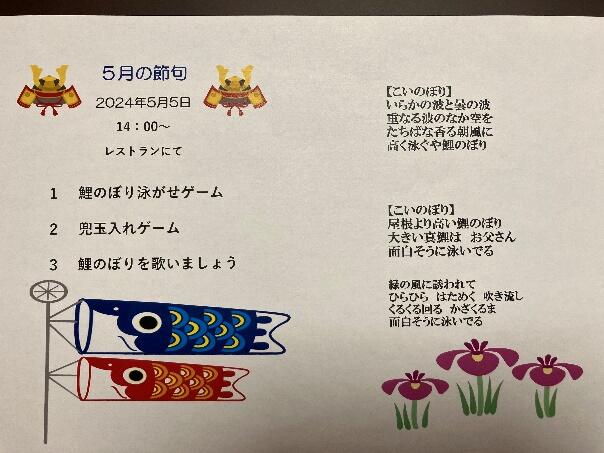 5月の節句
2024年5月5日
14：00～
レストランにて
1 鯉のぼり泳がせゲーム
2 兜玉入れゲーム
3 鯉のぼりを歌いましょう
【こいのぼり】
いらかの波と曇の波
重なる波のなか空を
たちばな香る朝風に
高く泳ぐや鯉のぼり
【こいのぼり】
屋根より高い鯉のぼり
大きい真鯉は お父さん
面白そうに泳いでる
緑の風に誘われて
ひらひら はためく 吹き流し
くるくる回る かざくるま
面白そうに泳いでる